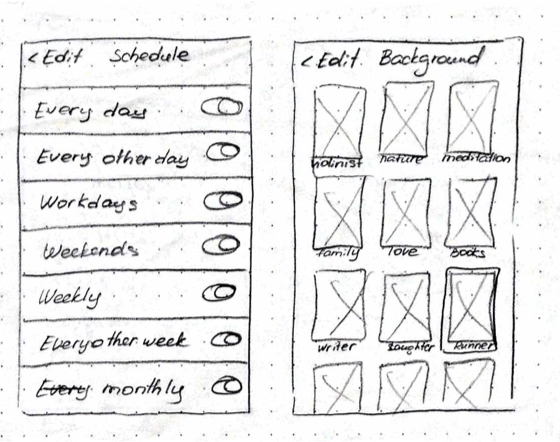 < Edit Schedule
Every day
Every other day
Workdays
Weekends
Weekly
Every other week
Every monthly
< Edit. Background
nature meditation
family love Books
writer Runner